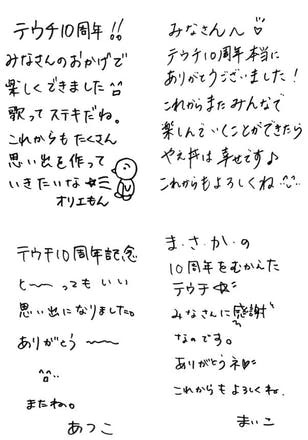 テウチ10周年!!
みなさんのおかげで
楽しくできました^^
歌ってステキだね。
これからもたくさん
思い出を作って
いきたいな☆彡
オリエもん
みなさんへ♡
テウチ10周年本当に
ありがとうございました!
これからまたみんなで
楽しんでいくことができたら
やえ丼は幸せです♪
これからもよろしくね^^
テウチ10周年記念
と〜ってもいい
思い出になりました。
ありがとう〜〜
^^
またね。
あつこ
ま・さ・か・の
10周年をむかえた
テウチ☆彡
みなさまに感謝
なのです。
ありがとうネ
これからもよろしくね。
まいこ